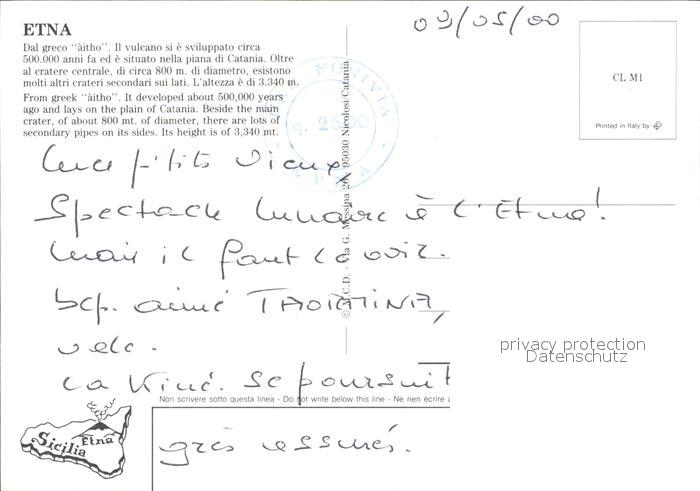 ETNA
Dal greco "àitho". Il vulcano si è sviluppato circa
500.000 anni fa ed è situato nella piana di Catania. Oltre
al cratere centrale, di circa 800 m. di diametro, esistono
molti altri crateri secondari sui lati. L'altezza è di 3.340 m.
From greek "àitho". It developed about 500,000 years
ago and lays on the plain of Catania. Beside the main
crater, of about 800 mt. of diameter, there are lots of
secondary pipes on its sides. Its height is of 3,340 mt.
03/05/00
CL M1
Printed in Italy by
FUNIVIA
q. 2500
ETNA
Via G. Messina 20 - 95030 Nicolosi/Catania
p'tits Vieux,
Spectacle lunaire à l'Etna!
mais il faut le voir.
bcp. aimé TAORMINA,
La Kiné. se poursuit
Non scrivere sotto questa linea - Do not write below this line - Ne rien écrire
Sicilia
Etna
assurés.
privacy protection
Datenschutz